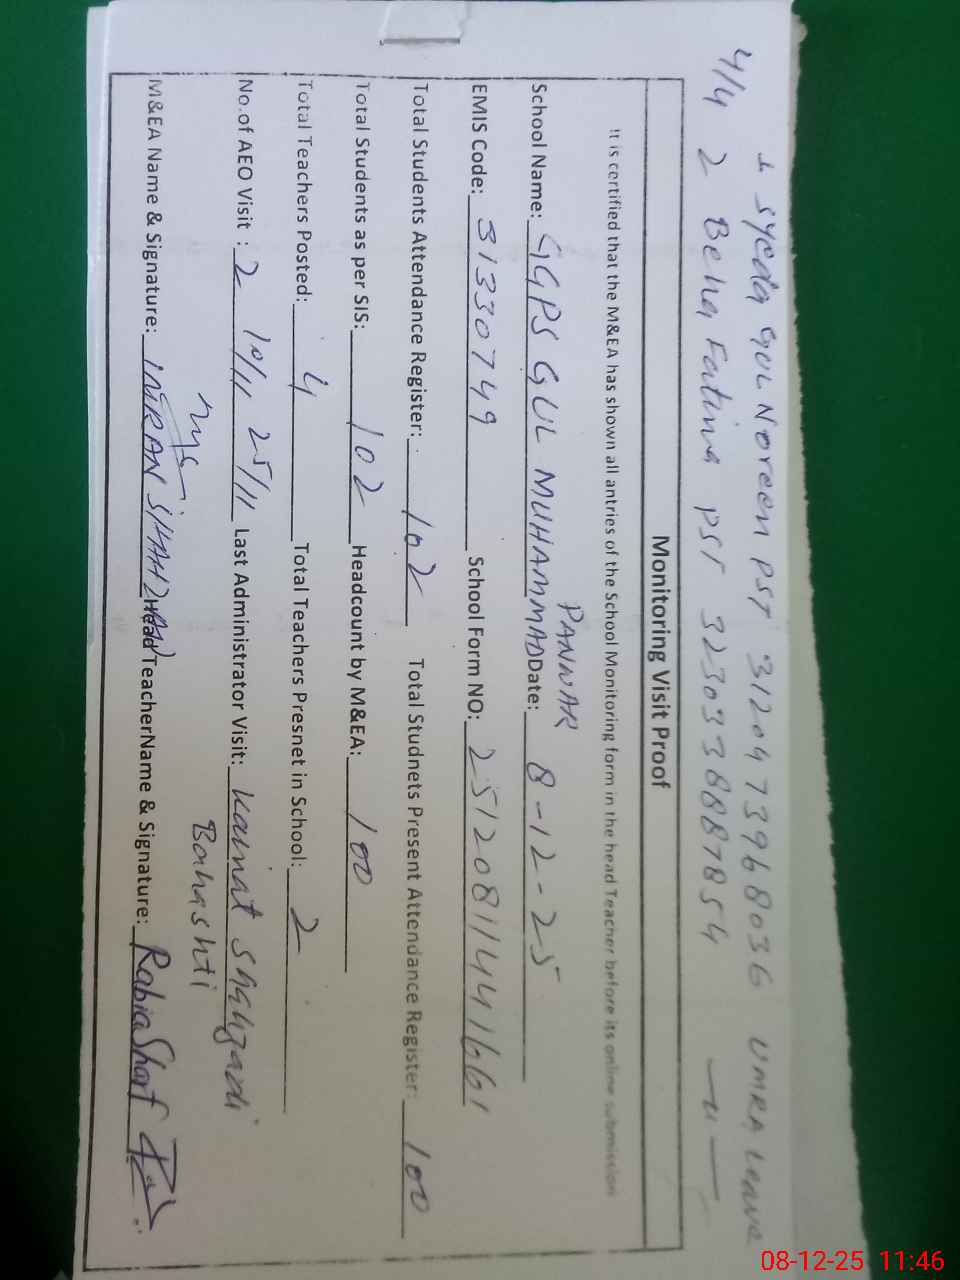 1 Syeda Gul Noreen PST 3120473968036 UMRA Leave
4/4 2 Beha Fatima PST 3230338887854 —u—
Monitoring Visit Proof
It is certified that the M&EA has shown all antries of the School Monitoring form in the head Teacher before its online submission
School Name: GGPS GUL MUHAMMAD PANWAR Date: 8-12-25
EMIS Code: 31330749 School Form NO: 251208114441661
Total Students Attendance Register: 102 Total Studnets Present Attendance Register: 100
Total Students as per SIS: 102 Headcount by M&EA: 100
Total Teachers Posted: 4 Total Teachers Presnet in School: 2
No.of AEO Visit : 2 10/11 25/11 Last Administrator Visit: Kainat Shahzadi
Bahashti
M&EA Name & Signature: IMRAN SHAHZAD Head TeacherName & Signature: Rabia Sharf
08-12-25 11:46